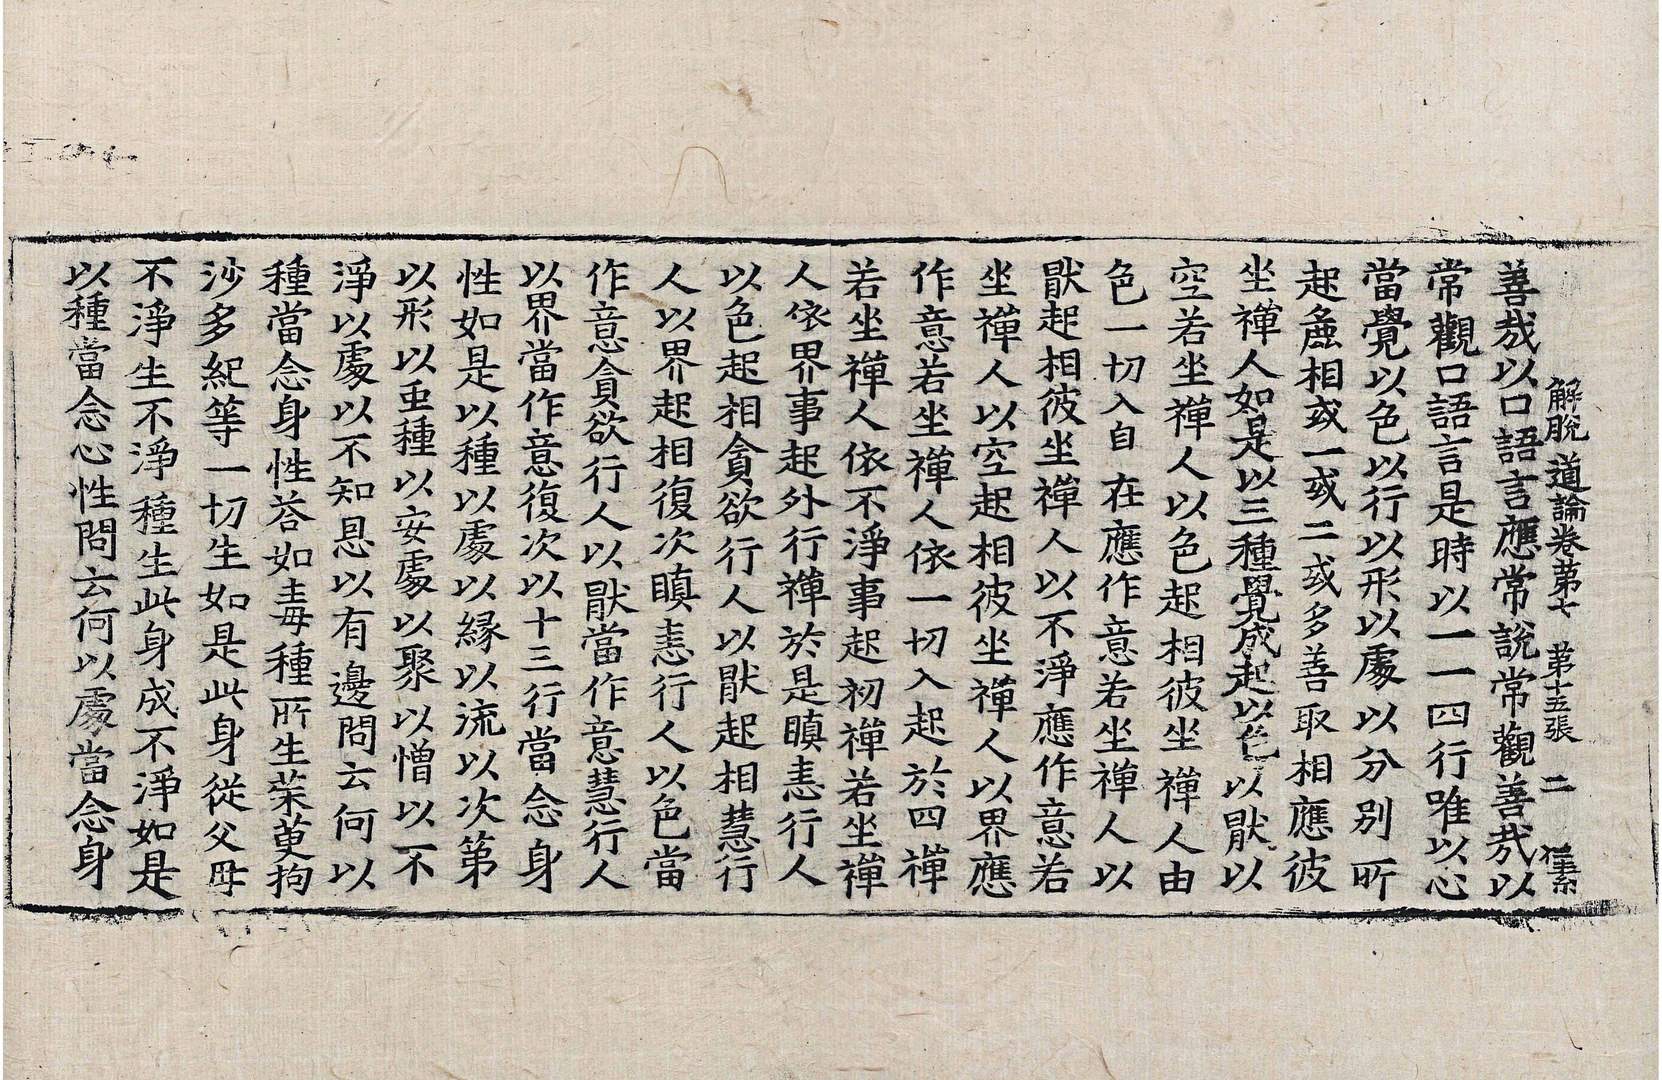 解脫道論卷第七　第十五張　二
善㢤以口語言應常說常觀善㢤以
常觀口語言是時以一一四行唯以心
當覺以色以行以形以䖏以分別所
起麁相或一或二或多善取相應彼
坐禪人如是以三種覺成起以色以猒以
空若坐禪人以色起相彼坐禪人由
色一切入自在應作意若坐禪人以
猒起相彼坐禪人以不淨應作意若
坐禪人以空起相彼坐禪人以界應
作意若坐禪人依一切入起於四禪
若坐禪人依不淨事起初禪若坐禪
人依界事起外行禪於是瞋恚行人
以色起相貪欲行人以猒起相慧行
人以界起相復次瞋恚行人以色當
作意貪欲行人以猒當作意慧行人
以界當作意復次以十三行當念身
性如是以種以䖏以緣以流以次第
以形以虫種以安䖏以聚以憎以不
淨以䖏以不知恩以有邊問云何以
種當念身性荅如毒種所生茱萸拘
沙多紀等一切生如是此身從父母
不淨生不淨種生此身成不淨如是
以種當念心性問云何以䖏當念身